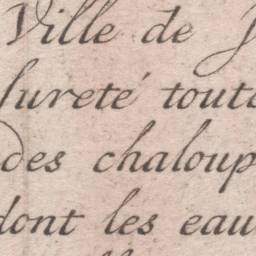 Ville de
sureté toute
des chaloup
dont les eau